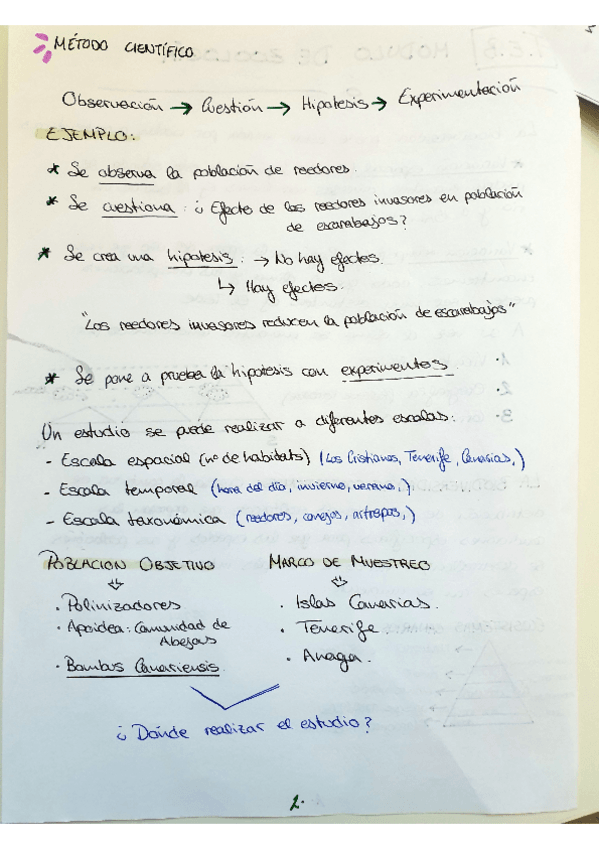 MÉTODO CIENTÍFICO
Observación → Cuestión → Hipotesis → Experimentación
EJEMPLO:
* Se observa la población de roedores.
* Se cuestiona: ¿Efecto de los roedores invasores en población
de escarabajos?
* Se crea una hipotesis: → No hay efectos.
↳ Hay efectos.
"Los roedores invasores reducen la población de escarabajos"
* Se pone a prueba la hipotesis con experimentos
Un estudio se puede realizar a diferentes escalas:
- Escala espacial (nº de habitats) (Los Cristianos, Tenerife, Canarias,)
- Escala temporal (hora del día, invierno, verano,).
- Escala taxonómica (roedores, conejos, artropos,)
POBLACION OBJETIVO
MARCO DE MUESTREO
· Polinizadores
· Islas Canarias.
· Apoidea: Comunidad de
Abejas
· Tenerife
· Bombus Canariensis.
· Anaga.
¿Dónde realizar el estudio?
2.